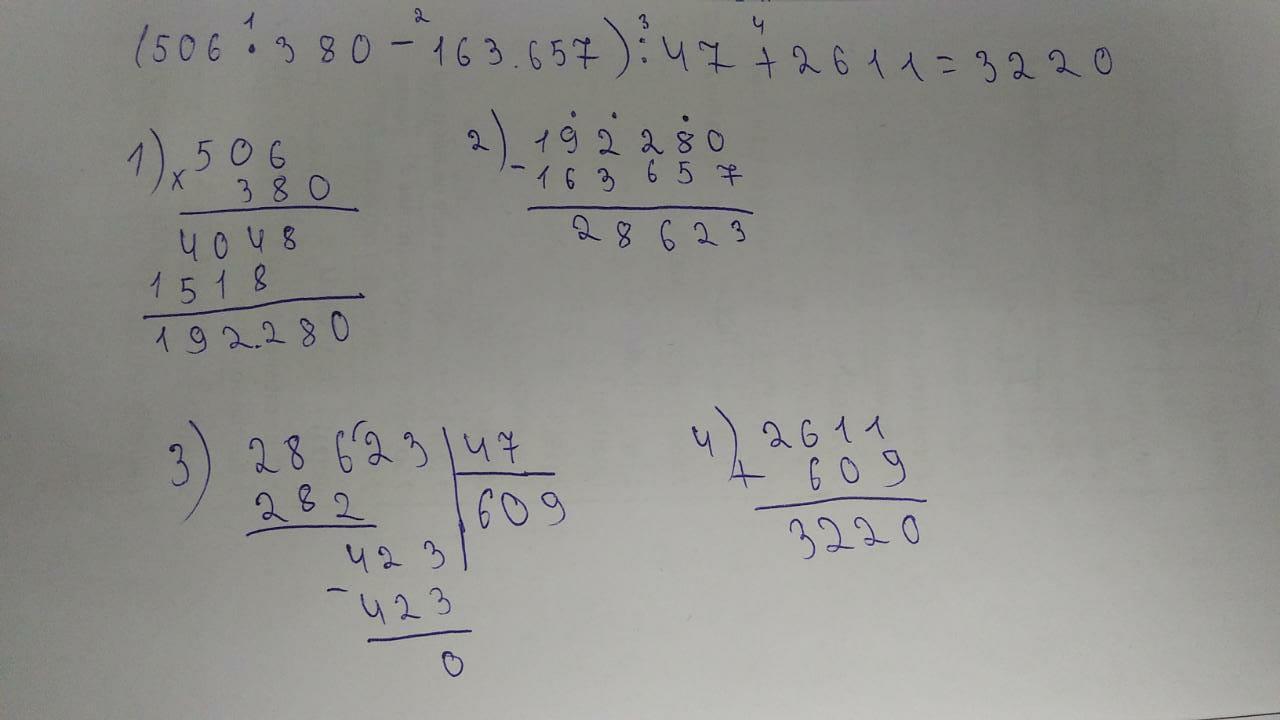 1 2 3 4
(506 · 380 - 163.657) : 47 + 2611 = 3220
1) × 506
380
4048
1518
192.280
2) - 192 280
163 657
28623
3) 28623 | 47
282 | 609
423
- 423
0
4) + 2611
609
3220